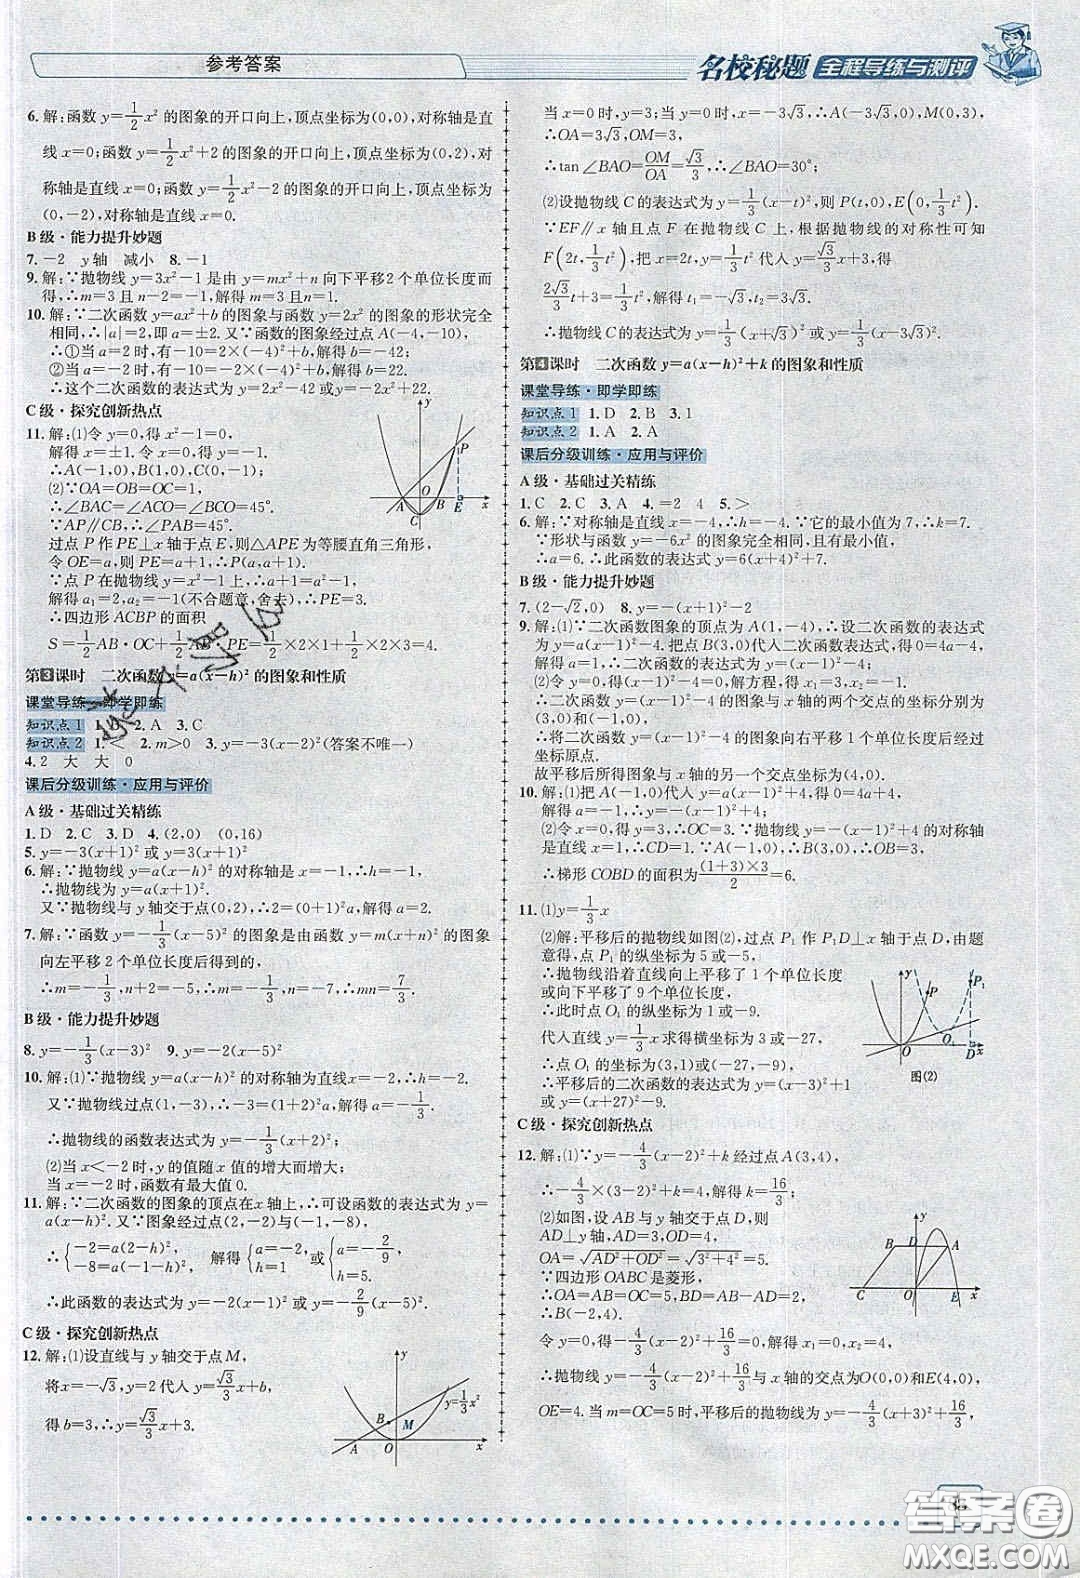 参考答案
名校秘题 全程导练与测评
6. 解:函数 y=1/2x²的图象的开口向上,顶点坐标为(0,0),对称轴是直
线 x=0;函数 y=1/2x²+2的图象的开口向上,顶点坐标为(0,2),对
称轴是直线 x=0;函数 y=1/2x²-2的图象的开口向上,顶点坐标为
(0,-2),对称轴是直线 x=0.
B级·能力提升妙题
7. -2 y轴 减小 8. -1
9. 解:∵抛物线 y=3x²-1是由 y=mx²+n向下平移2个单位长度而
得,∴m=3且n-2=-1,解得 m=3且n=1.
10. 解:∵二次函数 y=ax²+b的图象与函数 y=2x²的图象的形状完全
相同,∴|a|=2,即a=±2.又∵函数的图象经过点A(-4,-10),
∴①当a=2时,有-10=2×(-4)²+b,解得 b=-42;
②当a=-2时,有-10=-2×(-4)²+b,解得 b=22.
∴这个二次函数的表达式为 y=2x²-42或 y=-2x²+22.
C级·探究创新热点
11. 解:(1)令 y=0,得 x²-1=0,
解得 x=±1.令 x=0,得 y=-1.
∴A(-1,0),B(1,0),C(0,-1).
(2)∵OA=OB=OC=1,
∴∠BAC=∠ACO=∠BCO=45°.
∵AP∥CB,∴∠PAB=45°.
过点 P作PE⊥x轴于点E,则△APE为等腰直角三角形,
令OE=a,则PE=a+1,∴P(a,a+1).
∵点P在抛物线 y=x²-1上,∴a+1=a²-1.
解得 a₁=2,a₂=-1(不合题意,舍去),∴PE=3.
∴四边形ACBP的面积
S=1/2AB·OC+1/2AB·PE=1/2×2×1+1/2×2×3=4.
y P A O B E x C
第3课时 二次函数 y=a(x-h)²的图象和性质
课堂导练·即学即练
知识点1 2.A 3.C
知识点2 1.< 2.m>0 3.y=-3(x-2)²(答案不唯一)
4.2 大 大 0
课后分级训练·应用与评价
A级·基础过关精练
1.D 2.C 3.D 4.(2,0) (0,16)
5.y=-3(x+1)²或 y=3(x+1)²
6. 解:∵抛物线 y=a(x-h)²的对称轴是 x=-1,∴h=-1,
∴抛物线为 y=a(x+1)².
又∵抛物线与y轴交于点(0,2),∴2=(0+1)²a,解得 a=2.
7. 解:∵函数 y=-1/3(x-5)²的图象是由函数 y=m(x+n)²的图象
向左平移2个单位长度后得到的,
∴m=-1/3,n+2=-5,∴m=-1/3,n=-7,∴mn=7/3.
B级·能力提升妙题
8.y=-1/3(x-3)² 9.y=-2(x-5)²
10. 解:(1)∵抛物线 y=a(x-h)²的对称轴为直线x=-2,∴h=-2.
又∵抛物线过点(1,-3),∴-3=(1+2)²a,解得 a=-1/3.
∴抛物线的函数表达式为 y=-1/3(x+2)²;
(2)当 x<-2时,y的值随x值的增大而增大;
当x=-2时,函数有最大值0.
11. 解:∵二次函数的图象的顶点在x轴上,∴可设函数的表达式为 y=
a(x-h)².又∵图象经过点(2,-2)和(-1,-8),
∴{-2=a(2-h)², -8=a(-1-h)². 解得{a=-2, h=1.或{a=-2/9, h=5.
∴此函数的表达式为 y=-2(x-1)²或 y=-2/9(x-5)².
C级·探究创新热点
12. 解:(1)设直线与y轴交于点M,
将x=-√3,y=2代入 y=√3/3x+b,
得 b=3,∴y=√3/3x+3.
y y=1/3x² B M A O x
当x=0时,y=3;当y=0时,x=-3√3,∴A(-3√3,0),M(0,3),
∴OA=3√3,OM=3,
∴tan∠BAO=OM/OA=√3/3,∴∠BAO=30°;
(2)设抛物线C的表达式为 y=1/3(x-t)²,则P(t,0),E(0,1/3t²).
∵EF∥x轴且点F在抛物线C上,根据抛物线的对称性可知
F(2t,1/3t²),把 x=2t,y=1/3t²代入 y=√3/3x+3,得
2√3/3t+3=1/3t²,解得 t₁=-√3,t₂=3√3.
∴抛物线C的表达式为 y=1/3(x+√3)²或 y=1/3(x-3√3)².
第4课时 二次函数 y=a(x-h)²+k的图象和性质
课堂导练·即学即练
知识点1 1.D 2.B 3.1
知识点2 1.A 2.A
课后分级训练·应用与评价
A级·基础过关精练
1.C 2.C 3.A 4.=2 4 5.>
6. 解:∵对称轴是直线x=-4,∴h=-4.∵它的最小值为7,∴k=7.
∵形状与函数 y=-6x²的图象完全相同,且有最小值,
∴a=6.∴此函数的表达式 y=6(x+4)²+7.
B级·能力提升妙题
7.(2-√2,0) 8.y=-4(x-1)²-2
9. 解:(1)∵二次函数图象的顶点为A(1,-4),∴设二次函数的表达式
为 y=a(x-1)²-4.把点B(3,0)代入二次函数的表达式,得0=4a-4,
解得 a=1.∴二次函数的表达式为 y=(x-1)²-4;
(2)令 y=0,得(x-1)²-4=0,解得 x₁=3,x₂=-1.
∴二次函数 y=(x-1)²-4的图象与x轴的两个交点的坐标分别为
(3,0)和(-1,0).
∴将二次函数 y=(x-1)²-4的图象向右平移1个单位长度后经过
坐标原点.
故平移后所得图象与x轴的另一个交点坐标为(4,0).
10. 解:(1)把A(-1,0)代入 y=a(x-1)²+4,得0=4a+4,
解得 a=-1,∴y=-(x-1)²+4;
(2)令x=0,得y=3,∴OC=3.∵抛物线 y=-(x-1)²+4的对称轴
是直线x=1,∴CD=1.∵A(-1,0),∴B(3,0),∴OB=3.
∴梯形COBD的面积为(1+3)×3/2=6.
11.(1)y=1/3x
(2)解:平移后的抛物线如图(2),过点P₁作P₁D⊥x轴于点D,由题
意得,点P₁的纵坐标为5或-5,
∴抛物线沿着直线向上平移了1个单位长度
或向下平移了9个单位长度,
∴此时点O₁的纵坐标为1或-9.
代入直线 y=1/3x求得横坐标为3或-27,
∴点O₁的坐标为(3,1)或(-27,-9).
∴平移后的二次函数的表达式为 y=(x-3)²+1
或 y=(x+27)²-9.
y P P₁ O O₁ D x
图(2)
C级·探究创新热点
12. 解:(1)∵y=-4/3(x-2)²+k经过点A(3,4),
∴-4/3×(3-2)²+k=4,解得 k=16/3;
(2)如图,设AB与y轴交于点D,则
AD⊥y轴,AD=3,OD=4,
OA=√AD²+OD²=√3²+4²=5.
∵四边形OABC是菱形,
∴OA=AB=OC=5,BD=2,
∴B(-2,4).
y B D A C O E x
令 y=0,得-4/3(x-2)²+16/3=0,解得 x₁=0,x₂=4.
∴抛物线 y=-4/3(x-2)²+16/3与x轴的交点为O(0,0)和E(4,0),
OE=4.当m=OC=5时,平移后的抛物线为 y=-4/3(x+3)²+16/3,
答案圈
MXQE.COM